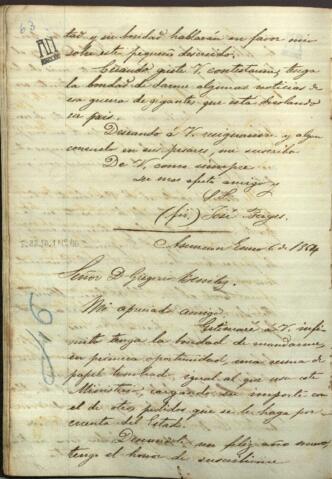 63
tad y su bondad hablarán en favor mio
sobre este pequeño descuido.
Cuando guste V. contestarme, tenga
la bondad de darme algunas noticias de
esa guerra de gigantes que está desolando
su pais.
Deseando á V. resignacion y algun
consuelo en sus pesares, me suscribo
De V. como siempre
su mas afecto amigo y
S. S.
(fir.) José Berges.
Asuncion Enero 6 de 1864
Señor D. Gregorio Benites.
Mi apreciado amigo.
Estimaré á V. infi-
nito tenga la bondad de mandarme,
en primera oportunidad, una resma de
papel timbrado igual al que usa este
Ministerio, cargando su importe con
el de otros pedidos que se le haga por
cuenta del Estado.
Deseandole un feliz año nuevo,
tengo el honor de suscribirme